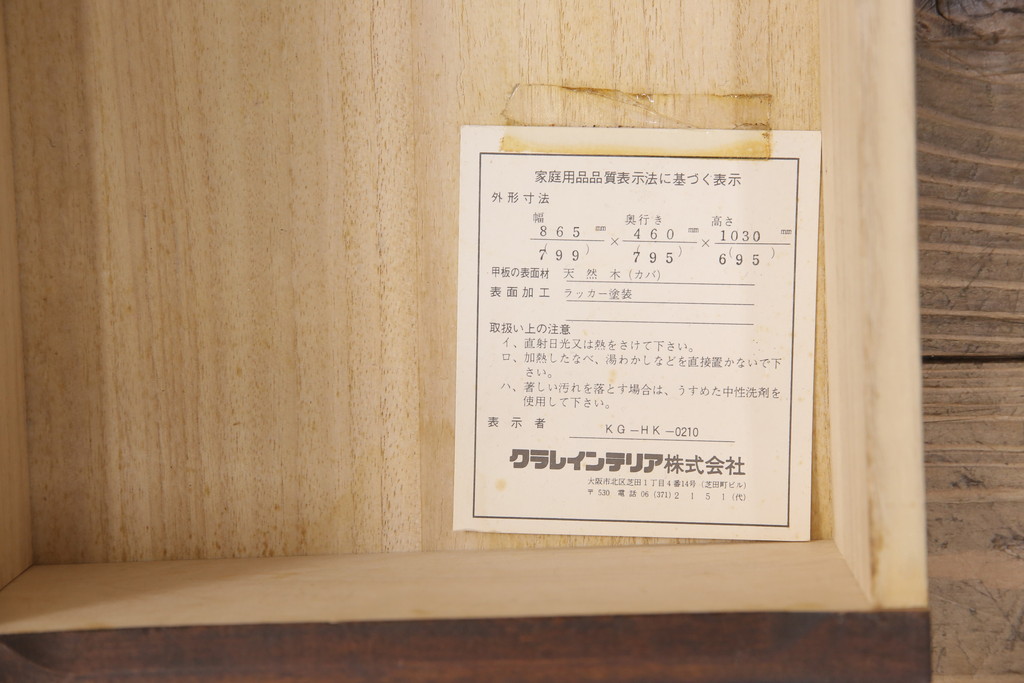 家庭用品品質表示法に基づく表示
外形寸法
幅 奥行き 高さ
865 mm × 460 mm × 1030 mm
(799) (795) 6(95)
甲板の表面材 天然木(カバ)
表面加工 ラッカー塗装
取扱い上の注意
イ、直射日光又は熱をさけて下さい。
ロ、加熱したなべ、湯わかしなどを直接置かないで下
さい。
ハ、著しい汚れを落とす場合は、うすめた中性洗剤を
使用して下さい。
表示者 KG-HK-0210
クラレインテリア株式会社
大阪市北区芝田1丁目4番14号(芝田町ビル)
〒530 電話06(371)2151(代)